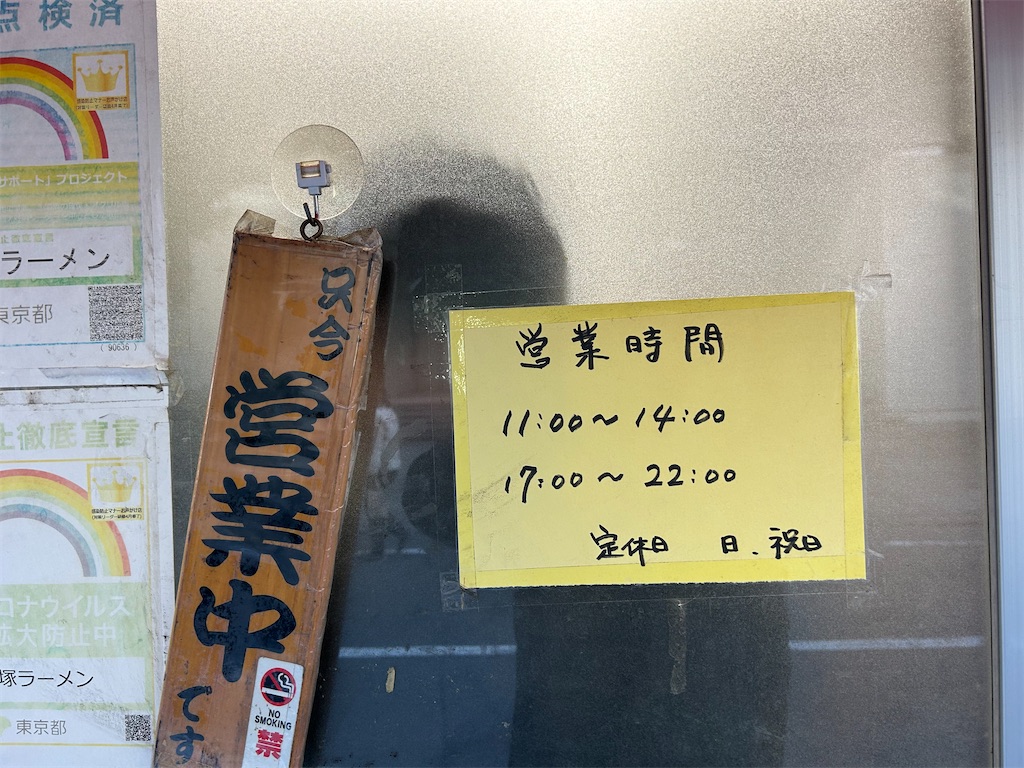 点検済
サポート」プロジェクト
止徹底宣言
ラーメン
東京都
( 90636 )
止徹底宣言
コロナウイルス
拡大防止中
塚ラーメン
東京都
只今
営業中
です
NO
SMOKING
禁
営業時間
11:00～14:00
17:00～22:00
定休日 日、祝日